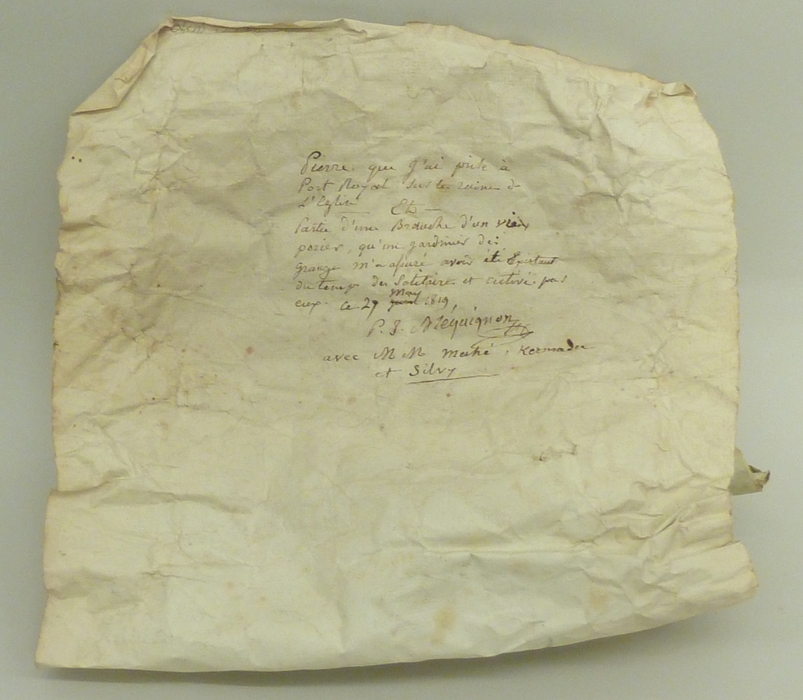 Pierre que j'ai prise à
Port Royal sur les ruines de
L'Eglise Et
Partie d'une Branche d'un vieux
poirier, qu'un jardinier des
grange m'a assuré avoir été Existant
du temps des Solitaire et cultivé par
eux. ce 27 May juin 1819,
P. J. Mequignon
avec M M mahé, Kermadec
et Silvy